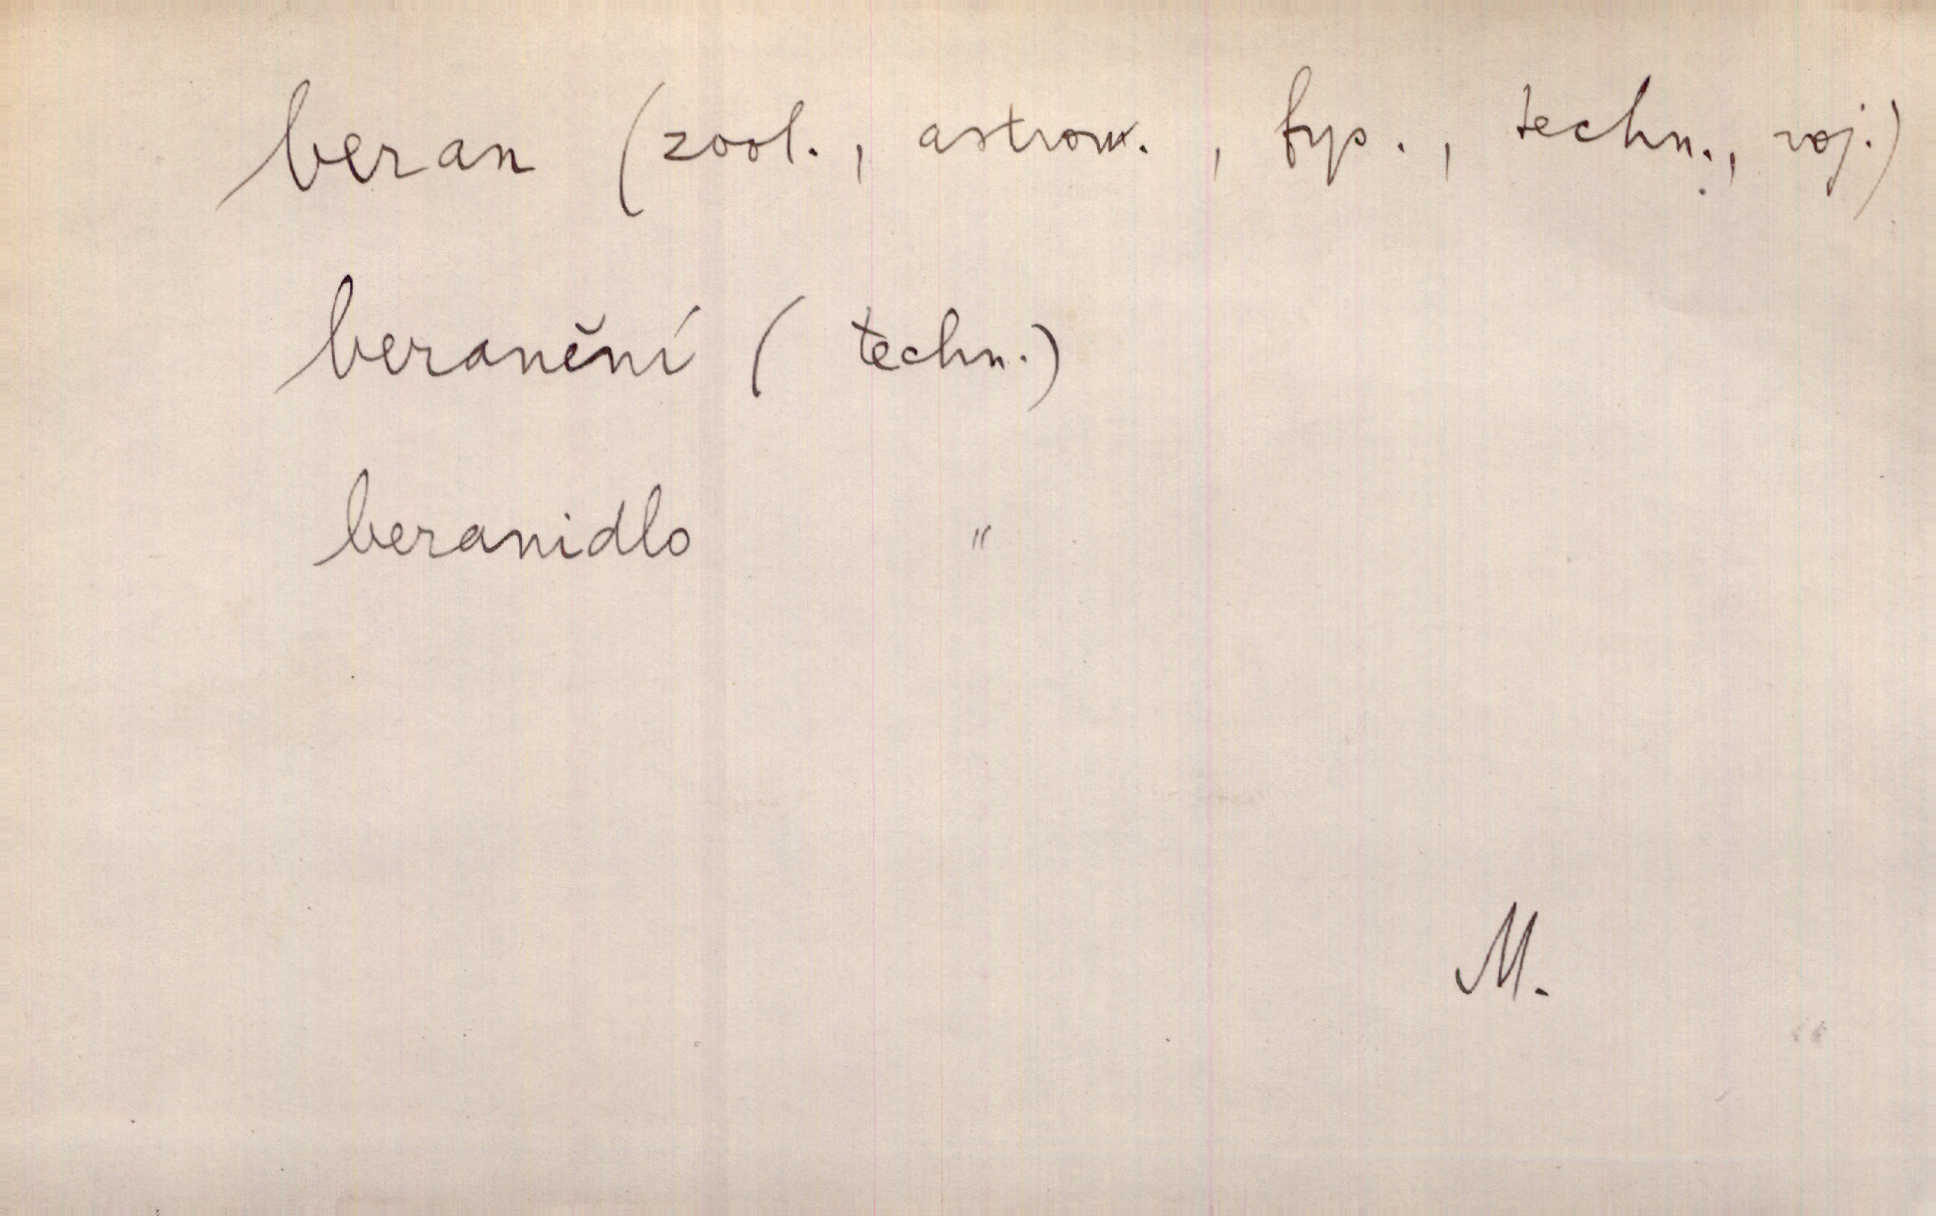 beran (zool., astron., fys., techn., voj.)
beranění (techn.)
beranidlo "
M.